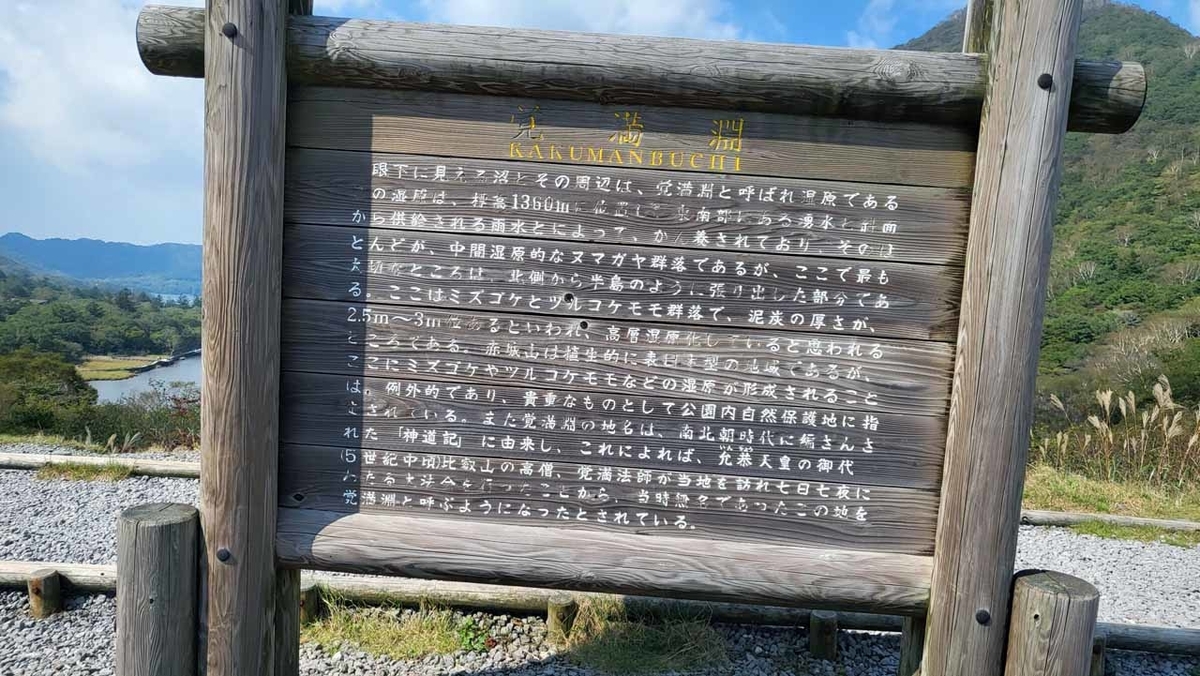 覚満淵
KAKUMANBUCHI
眼下に見える沼とその周辺は、覚満淵と呼ばれ湿原である
の湿原は、標高1360mに位置し、東南部にある湧水と斜面
から供給される雨水とによって、かん養されており、そのほ
とんどが、中間湿原的なヌマガヤ群落であるが、ここで最も
大切なところは、北側から半島のように張り出した部分であ
る。ここはミズゴケとツルコケモモ群落で、泥炭の厚さが、
2.5m〜3m位あるといわれ、高層湿原化していると思われる
ところである。赤城山は植生的に表日本型の地域であるが、
ここにミズゴケやツルコケモモなどの湿原が形成されること
は。例外的であり、貴重なものとして公園内自然保護地に指
定されている。また覚満淵の地名は、南北朝時代に編さんさ
れた「神道記」に由来し、これによれば、允恭天皇の御代
(5世紀中頃)比叡山の高僧、覚満法師が当地を訪れ七日七夜に
わたる大法会を行ったことから、当時無名であったこの地を
覚満淵と呼ぶようになったとされている。